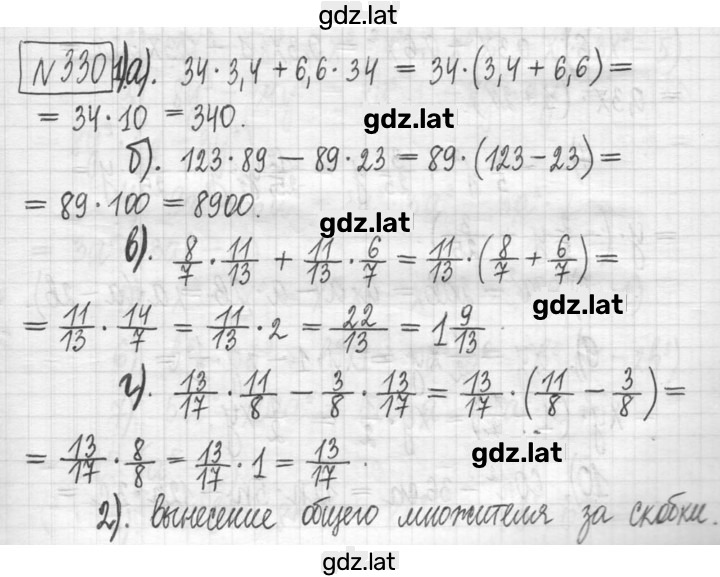 gdz.lat
№ 330 1) а). 34·3,4 + 6,6·34 = 34·(3,4 + 6,6) =
= 34·10 = 340. gdz.lat
б). 123·89 − 89·23 = 89·(123 − 23) =
= 89·100 = 8900. gdz.lat
в). 8/7 · 11/13 + 11/13 · 6/7 = 11/13 · (8/7 + 6/7) =
gdz.lat
= 11/13 · 14/7 = 11/13 · 2 = 22/13 = 1 9/13
г). 13/17 · 11/8 − 3/8 · 13/17 = 13/17 · (11/8 − 3/8) =
= 13/17 · 8/8 = 13/17 · 1 = 13/17. gdz.lat
2). вынесение общего множителя за скобки.
gdz.lat